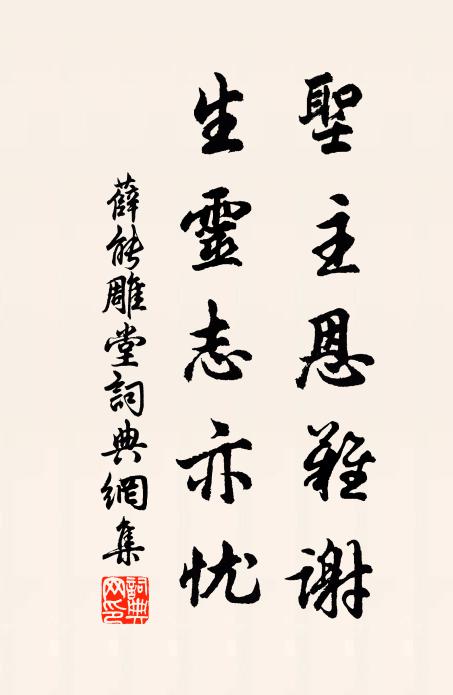 聖主恩難謝
生靈志亦忧
薛能雕堂詞典網集
詞典网印